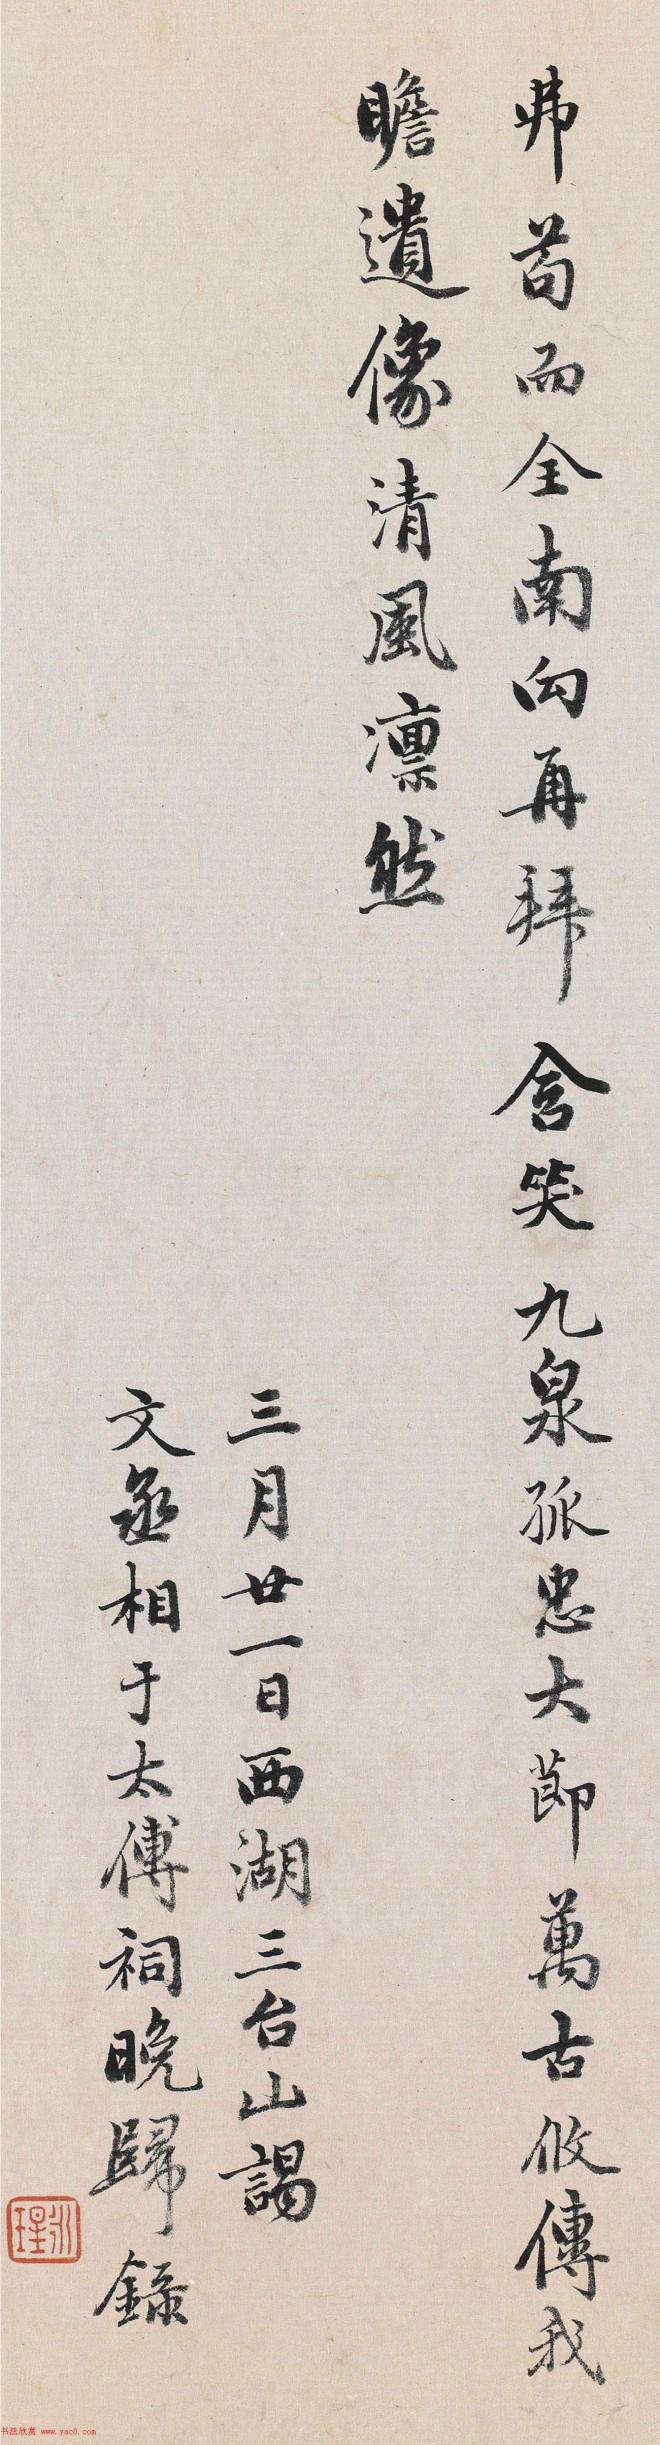 弗苟而全南向再拜含笑九泉孤忠大節萬古攸傳我
瞻遺像清風凛然
三月廿一日西湖三台山謁
文丞相于太傅祠晚歸錄
永瑆
书法欣赏 www.yac8.com